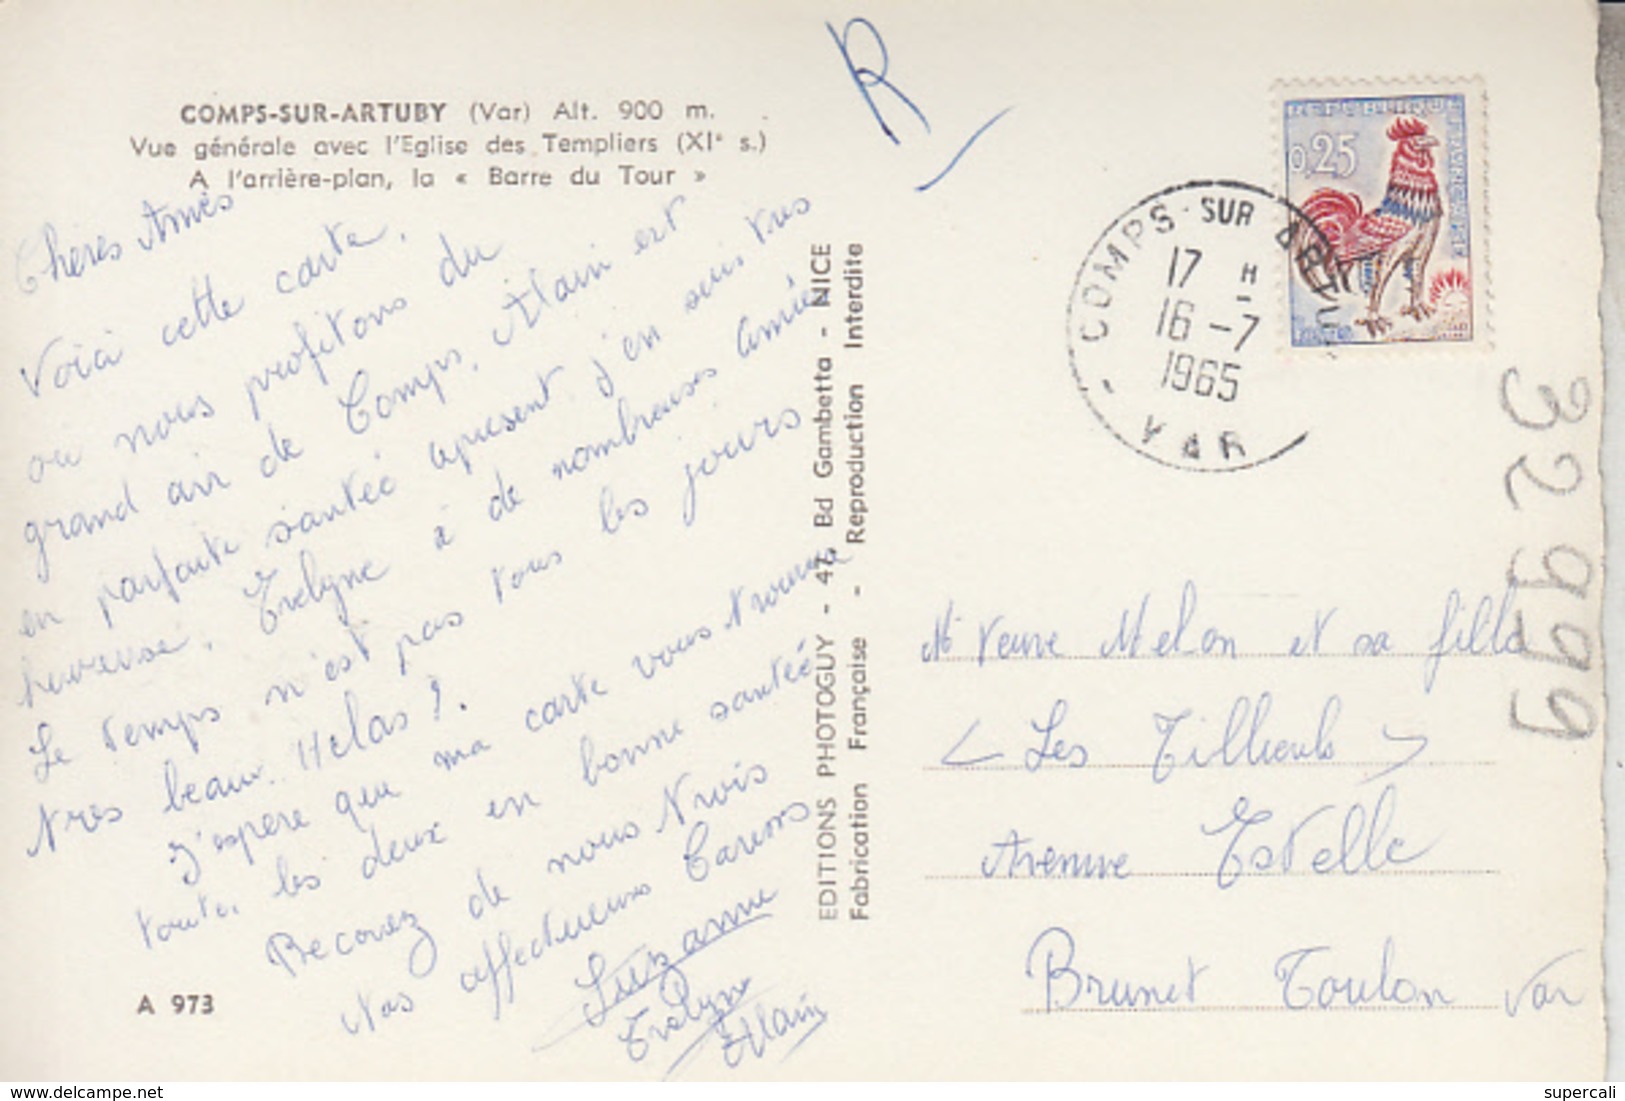 COMPS-SUR-ARTUBY (Var) Alt. 900 m.
Vue générale avec l'Eglise des Templiers (XIe s.)
A l'arrière-plan, la « Barre du Tour »
Chères Amies
Voici cette carte.
ou nous profitons du
grand air de Comps. Alain est
en parfaite santée apresent j'en suis tres
heureuse. Evelyne à de nombreuses amies
Le temps n'est pas tous les jours
très beau. Helas!.
J'espere que ma carte vous trouve
toute les deux en bonne santée
Recevez de nous trois
Nos affectueuses Caresses
Suzanne
Evelyne
Alain
A 973
EDITIONS PHOTOGUY - 47, Bd Gambetta - NICE
Fabrication Française - Reproduction Interdite
R
REPUBLIQUE FRANCAISE
0,25
POSTES
COMPS-SUR-ARTUBY
17 H
16-7
1965
VAR
32999
Me Veuve Melon et sa fille
< Les Tilleuls >
Avenue Estelle
Brunet Toulon Var
delcampe.net
supercali